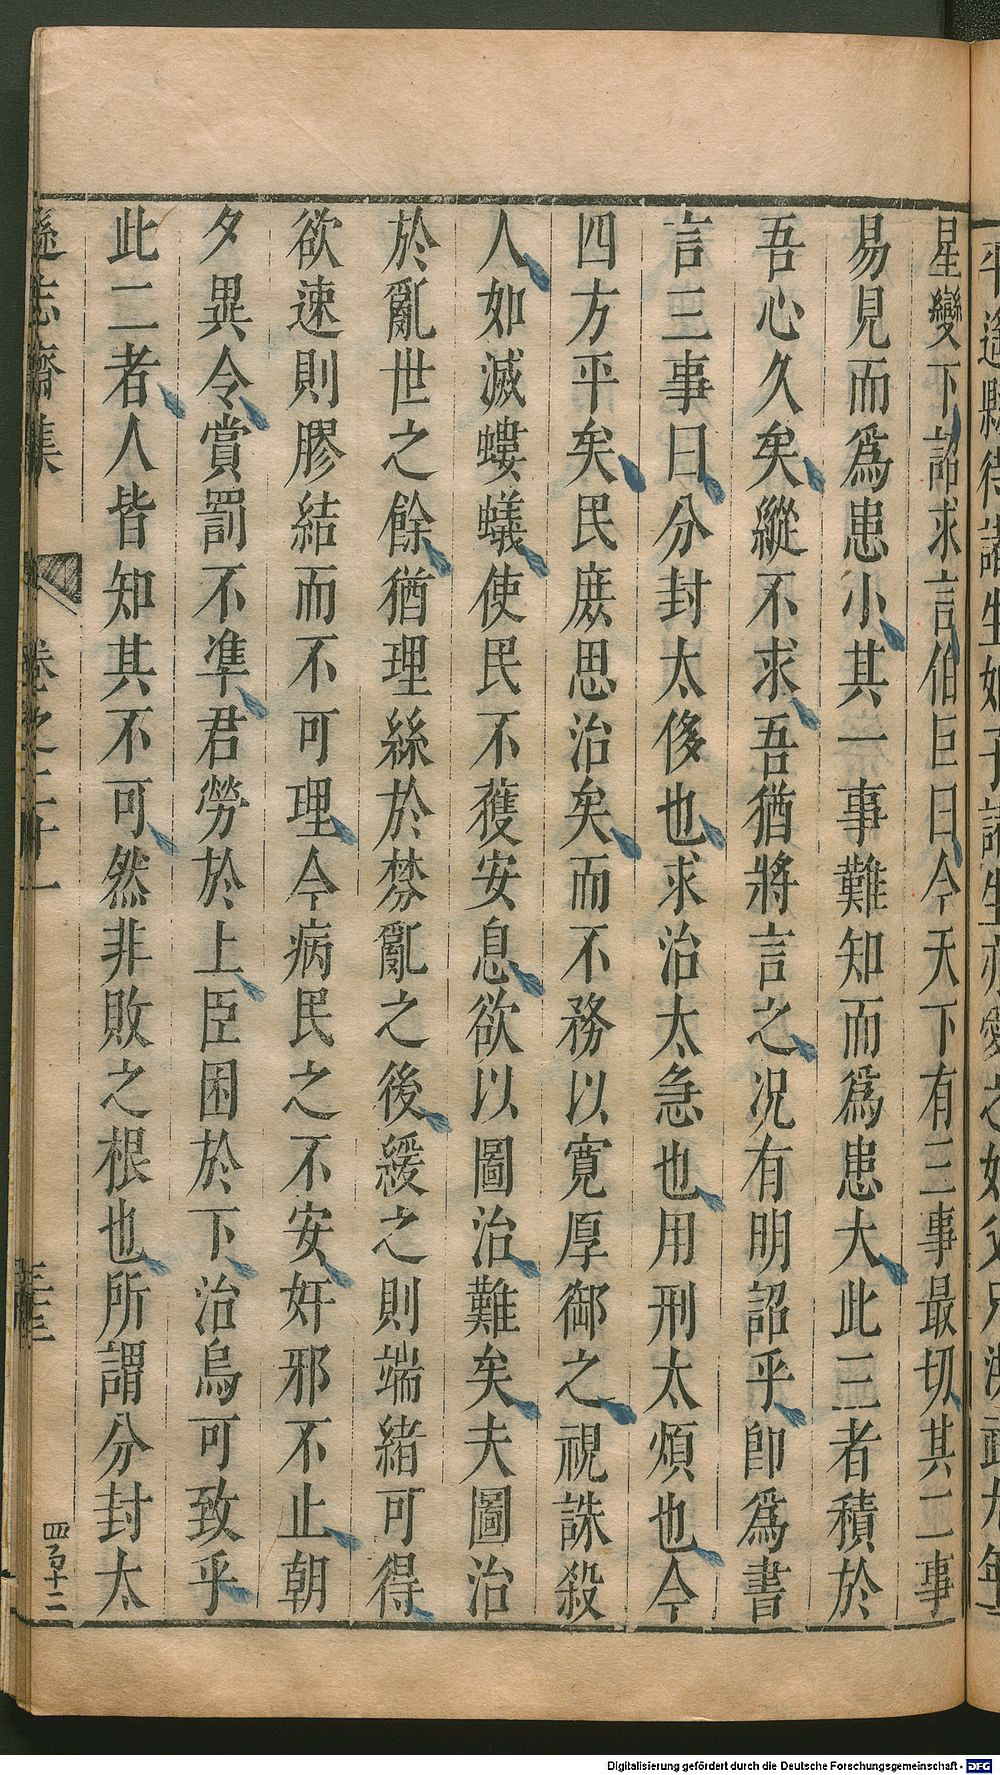 星變下詔求言伯巨曰今天下有三事最切其二事
易見而爲患小其一事難知而爲患大此三者積於
吾心久矣縱不求吾猶將言之况有明詔乎卽爲書
言三事曰分封太侈也求治太急也用刑太煩也今
四方平矣民庶思治矣而不務以寬厚御之視誅殺
人如滅螻蟻使民不獲安息欲以圖治難矣夫圖治
於亂世之餘猶理絲於棼亂之後緩之則端緒可得
欲速則膠結而不可理今病民之不安奸邪不止朝
夕異令賞罰不準君勞於上臣困於下治烏可致乎
此二者人皆知其不可然非敗之根也所謂分封太
遜志齋集 卷之二十一
四百十二
Digitalisierung gefördert durch die Deutsche Forschungsgemeinschaft - DFG